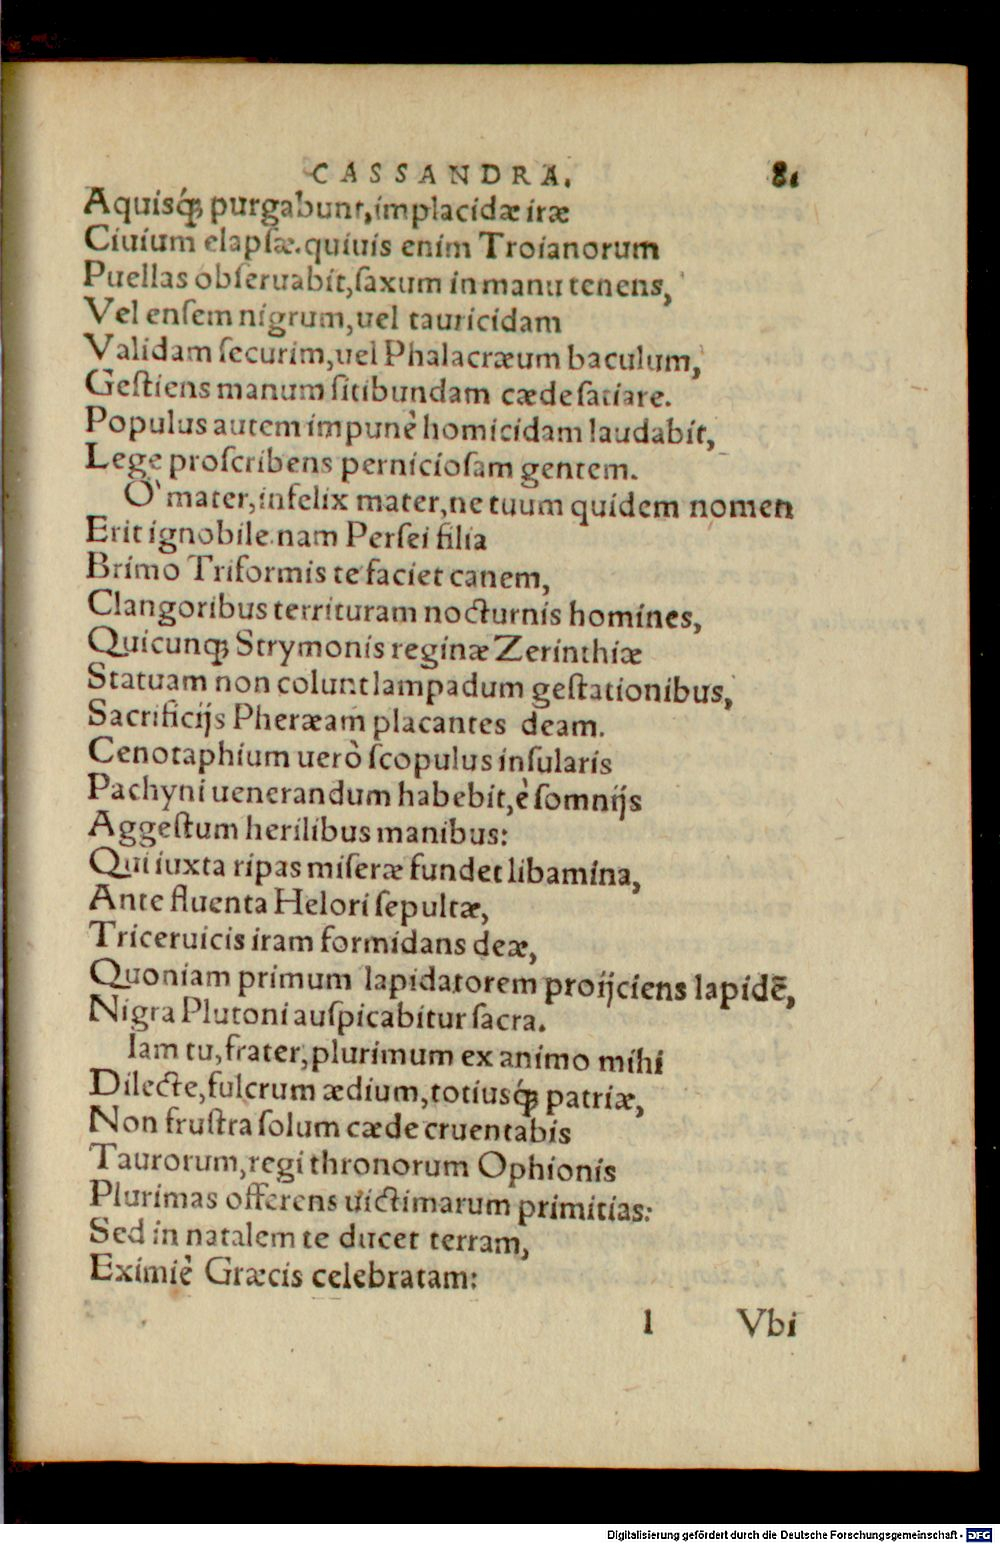 CASSANDRA. 81
Aquisq́ꝫ purgabunt, implacidæ iræ
Ciuium elapsæ. quiuis enim Troianorum
Puellas obseruabit, saxum in manu tenens,
Vel ensem nigrum, uel tauricidam
Validam securim, uel Phalacræum baculum,
Gestiens manum sitibundam cæde satiare.
Populus autem impunè homicidam laudabit,
Lege proscribens perniciosam gentem.
O` mater, infelix mater, ne tuum quidem nomen
Erit ignobile. nam Persei filia
Brimo Triformis te faciet canem,
Clangoribus territuram nocturnis homines,
Quicunqꝫ Strymonis reginæ Zerinthiæ
Statuam non colunt lampadum gestationibus,
Sacrificijs Pheræam placantes deam.
Cenotaphium uerò scopulus insularis
Pachyni uenerandum habebit, è somnijs
Aggestum herilibus manibus:
Qui iuxta ripas miseræ fundet libamina,
Ante fluenta Helori sepultæ,
Triceruicis iram formidans deæ,
Quoniam primum lapidatorem proijciens lapidē,
Nigra Plutoni auspicabitur sacra.
Iam tu, frater, plurimum ex animo mihi
Dilecte, fulcrum ædium, totiusq́ꝫ patriæ,
Non frustra solum cæde cruentabis
Taurorum, regi thronorum Ophionis
Plurimas offerens uictimarum primitias:
Sed in natalem te ducet terram,
Eximiè Græcis celebratam:
l Vbi
Digitalisierung gefördert durch die Deutsche Forschungsgemeinschaft - DFG